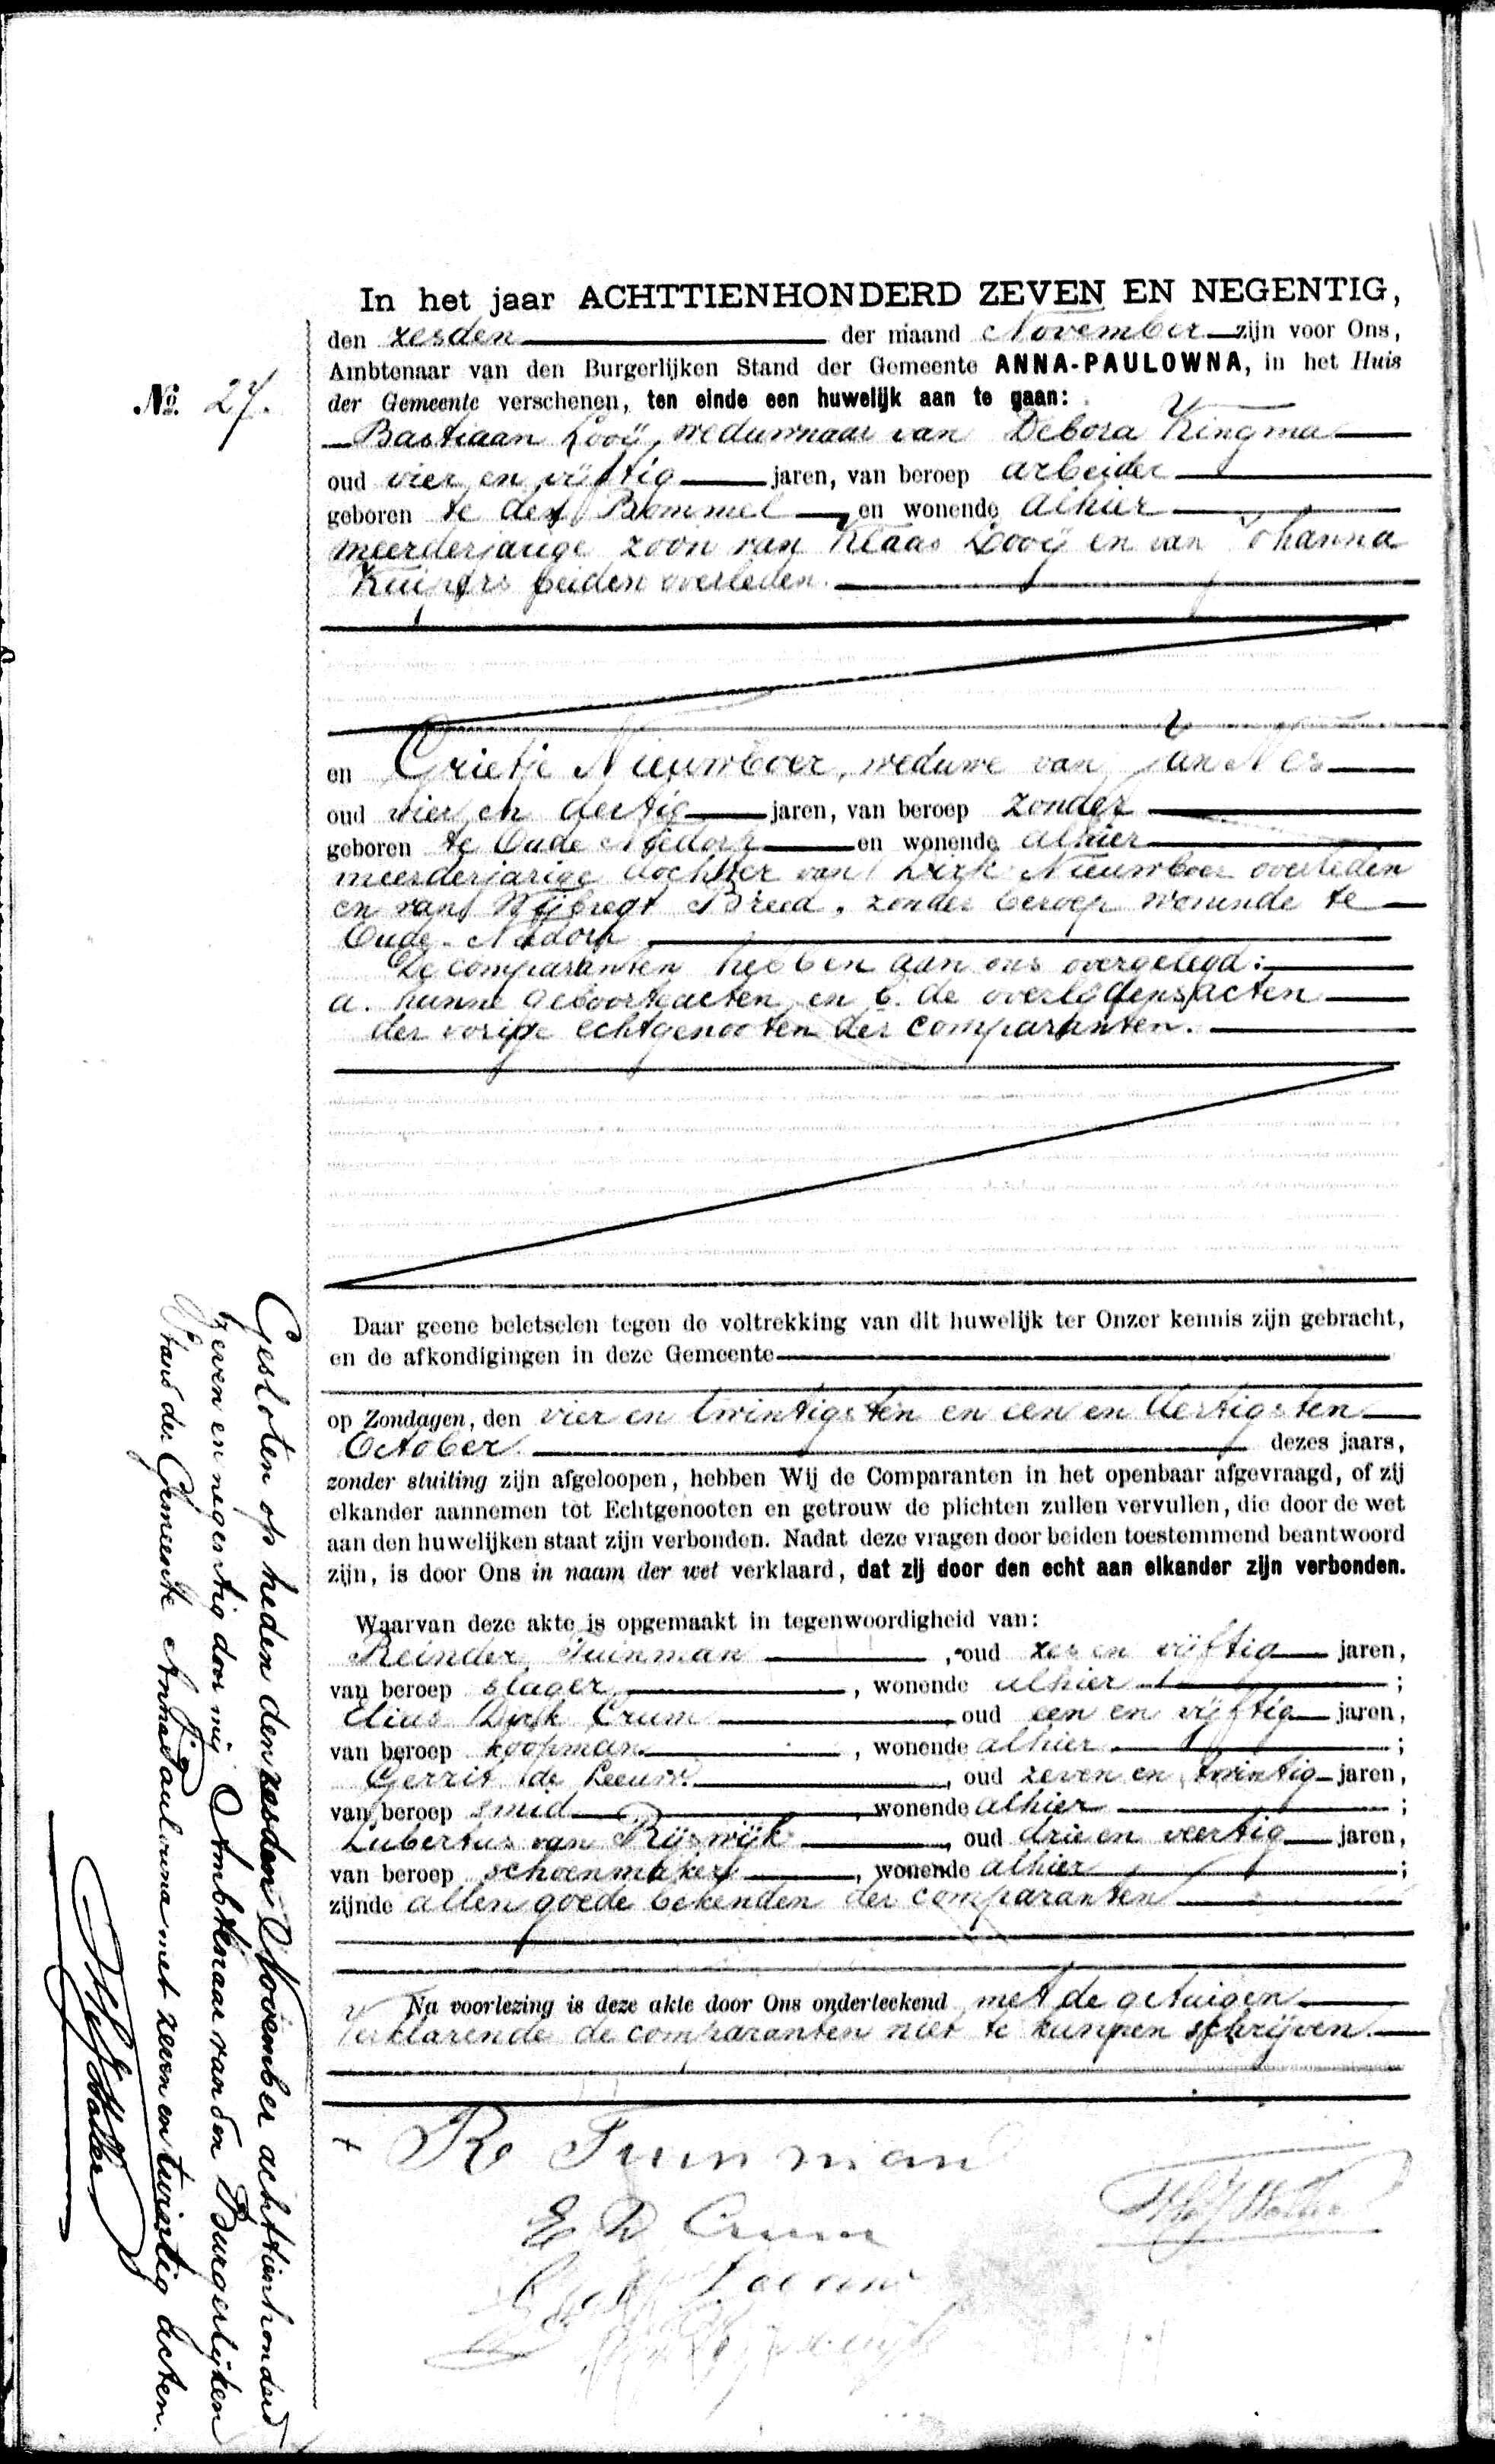 In het jaar ACHTTIENHONDERD ZEVEN EN NEGENTIG,
den zesden der maand November zijn voor Ons,
Ambtenaar van den Burgerlijken Stand der Gemeente ANNA-PAULOWNA, in het Huis
No. 27.
der Gemeente verschenen, ten einde een huwelijk aan te gaan:
Bastiaan Looij, weduwnaar van Debora Kingma
oud vier en vijftig jaren, van beroep arbeider
geboren te den Bommel en wonende alhier
meerderjarige zoon van Klaas Looij en van Johanna
Kuipers beiden overleden.
en Grietje Nieuwboer, weduwe van Jan Nes
oud vier en dertig jaren, van beroep zonder
geboren te Oude Niedorp en wonende alhier
meerderjarige dochter van Dirk Nieuwboer overleden
en van Breed, zonder beroep wonende te
Oude-Niedorp
De comparanten hebben aan ons overgelegd:
a. hunne geboorteacten en b. de overlijdensacten
der vorige echtgenooten der comparanten.
Daar geene beletselen tegen de voltrekking van dit huwelijk ter Onzer kennis zijn gebracht,
en de afkondigingen in deze Gemeente
op Zondagen, den vier en twintigsten en een en dertigsten
October dezes jaars,
zonder stuiting zijn afgeloopen, hebben Wij de Comparanten in het openbaar afgevraagd, of zij
elkander aannemen tot Echtgenooten en getrouw de plichten zullen vervullen, die door de wet
aan den huwelijken staat zijn verbonden. Nadat deze vragen door beiden toestemmend beantwoord
zijn, is door Ons in naam der wet verklaard, dat zij door den echt aan elkander zijn verbonden.
Waarvan deze akte is opgemaakt in tegenwoordigheid van:
Reinder Tuinman, oud zes en vijftig jaren,
van beroep slager, wonende alhier;
Elias Dirk Crum, oud een en vijftig jaren,
van beroep koopman, wonende alhier;
Gerrit de Leeuw, oud zeven en twintig jaren,
van beroep smid, wonende alhier;
Lubertus van Rijswijk, oud drie en veertig jaren,
van beroep schoenmaker, wonende alhier;
zijnde allen goede bekenden der comparanten
Na voorlezing is deze akte door Ons onderteekend met de getuigen
Verklarende de comparanten niet te kunnen schrijven.
R Tuinman
E D Crum
Leeuw
Gesloten op heden den zesden November achttienhonderd
zeven en negentig door mij Ambtenaar van den Burgerlijken
Stand der Gemeente Anna Paulowna met zeven en twintig acten.